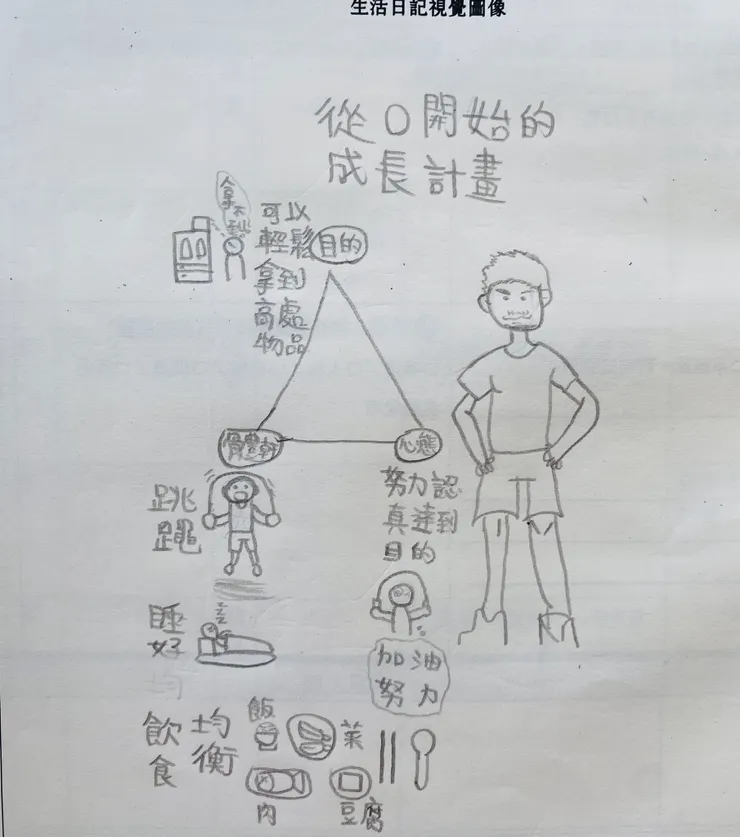 生活日記視覺圖像
從0開始的
成長計畫
拿不到
可以
輕鬆
拿到
高處
物品
目的
心態
跳
繩
努力認
真達到
目的
睡
好
加油
努力
飲食
均衡
飯
菜
肉
豆腐